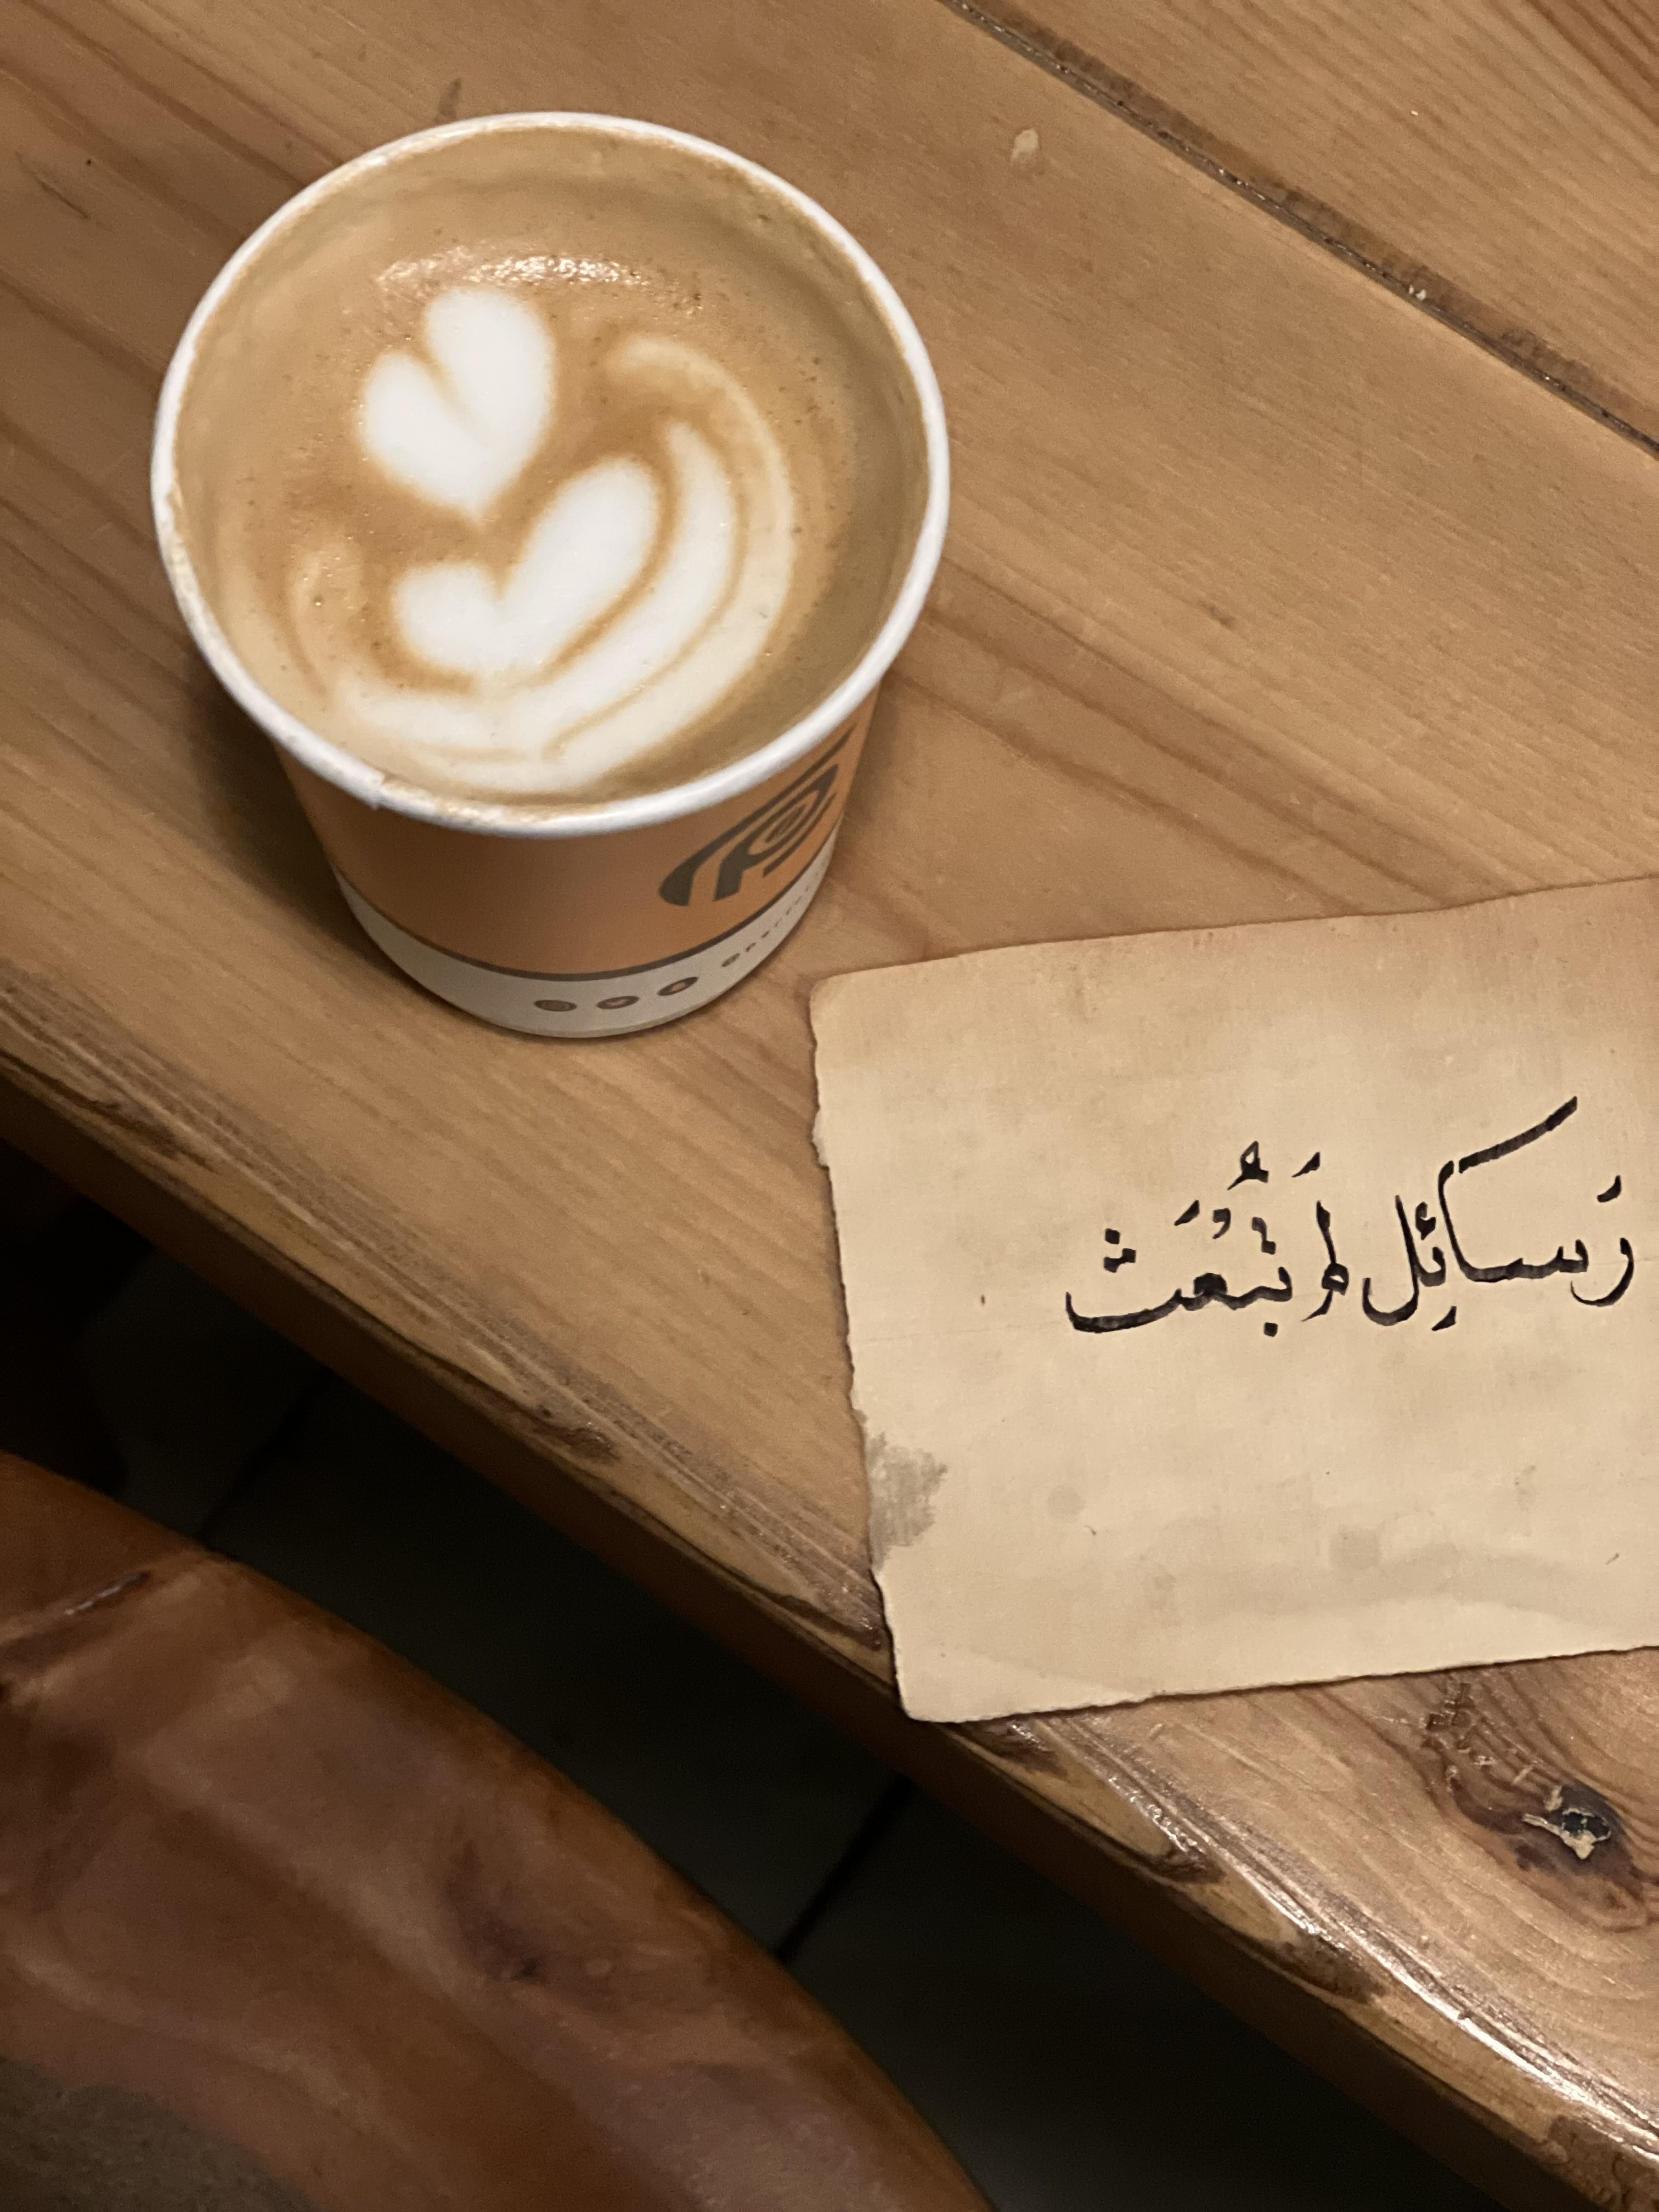 رَسَائِل لَم تُبْعَث